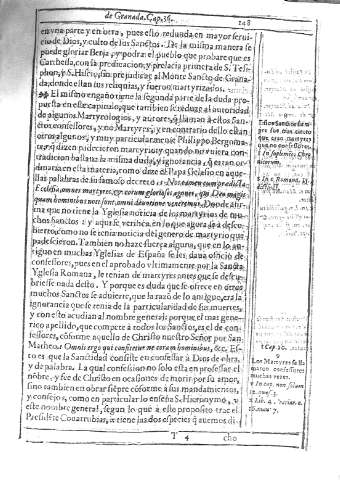 de Granada. Cap. 36. 148
en vno parte y en otra, pues esto redunda en mayor serui
cio de Dios, y culto de los Sanctos. De la misma manera se
puede gloriar Berja, y podra: el pueblo que probare que es
Carthesa, con la predicacion, y prelacia primera de S. Tesi-
phon, y S. Hiscio, sin prejudicar al Monte Sancto de Grana-
da, donde estan sus reliquias, y fueron martyrizados.
El mismo engaño tiene la segunda parte de la duda pro-
puesta en este capitulo, que tambien se reduze a la autoridad
do algunos Martyrologios, y autores, que llaman a estos San-
ctos confessores, y no Martyres: y en contrario dello estan
otros algunos, y muy particularmente Philippo Bergoma-
que dizen padecieron martyrio: y quando no vuiera con-
tradicion bastaua la misma duda, y ignorancia,
en esta materia, como dize el Papa Gelasio en aque-
llas palabras de su famoso decreto. Nos tamen cum prædicta
Ecclesia, omnes martyres, & eorum gloriosos agones, qui Deo magis
quam hominibus noti sunt, omni deuotione veneramur. Donde afir-
ma que no tiene la Yglesia noticia de los martyrios de mu-
chos Sanctos: y aqui se verifica, en lo que agora se a descu-
bierto, como no se tenia noticia del genero de martyrio que
padescieron. Tambien no haze fuerça alguna, que en lo an-
tiguo en muchas Yglesias de España se les daua officio de
confessores, pues en el aprobado vltimamente por la Sancta
Yglesia Romana, le tenian de martyres antes que se descu-
briesse nada desto. Y porque es duda que se ofrece en otros
muchos Sanctos se aduierte, que la razō de lo antiguo, era la
ignorancia que se tenia de la particularidad de sus muertes,
y con esto acudian al nombre general: porque el mas gene-
rico apellido, que compete a todos los Sanctos, es el de con-
fessores, cōforme aquello de Christo nuestro Señor por San
Matheo: Omnis ergo qui confitetur me coram hominibus, &c. Es-
to es que la Sanctidad consiste en confessar a Dios de obra,
y de palabra. La qual confession no solo esta en professar el
nōbre, y fee de Christo en ocasiones de morir por su amor,
sino tambien en obrar siēpre cōforme a sus mandamientos,
y consejos, como en particular lo enseña S. Hieronymo, y
este nombre general, segun lo que a este proposito trae el
Presidēte Couarrubias, tiene jas dos especies que auemos di-
T 4 cho
Los Martyres se lla
maron confessores
muchas vezes.